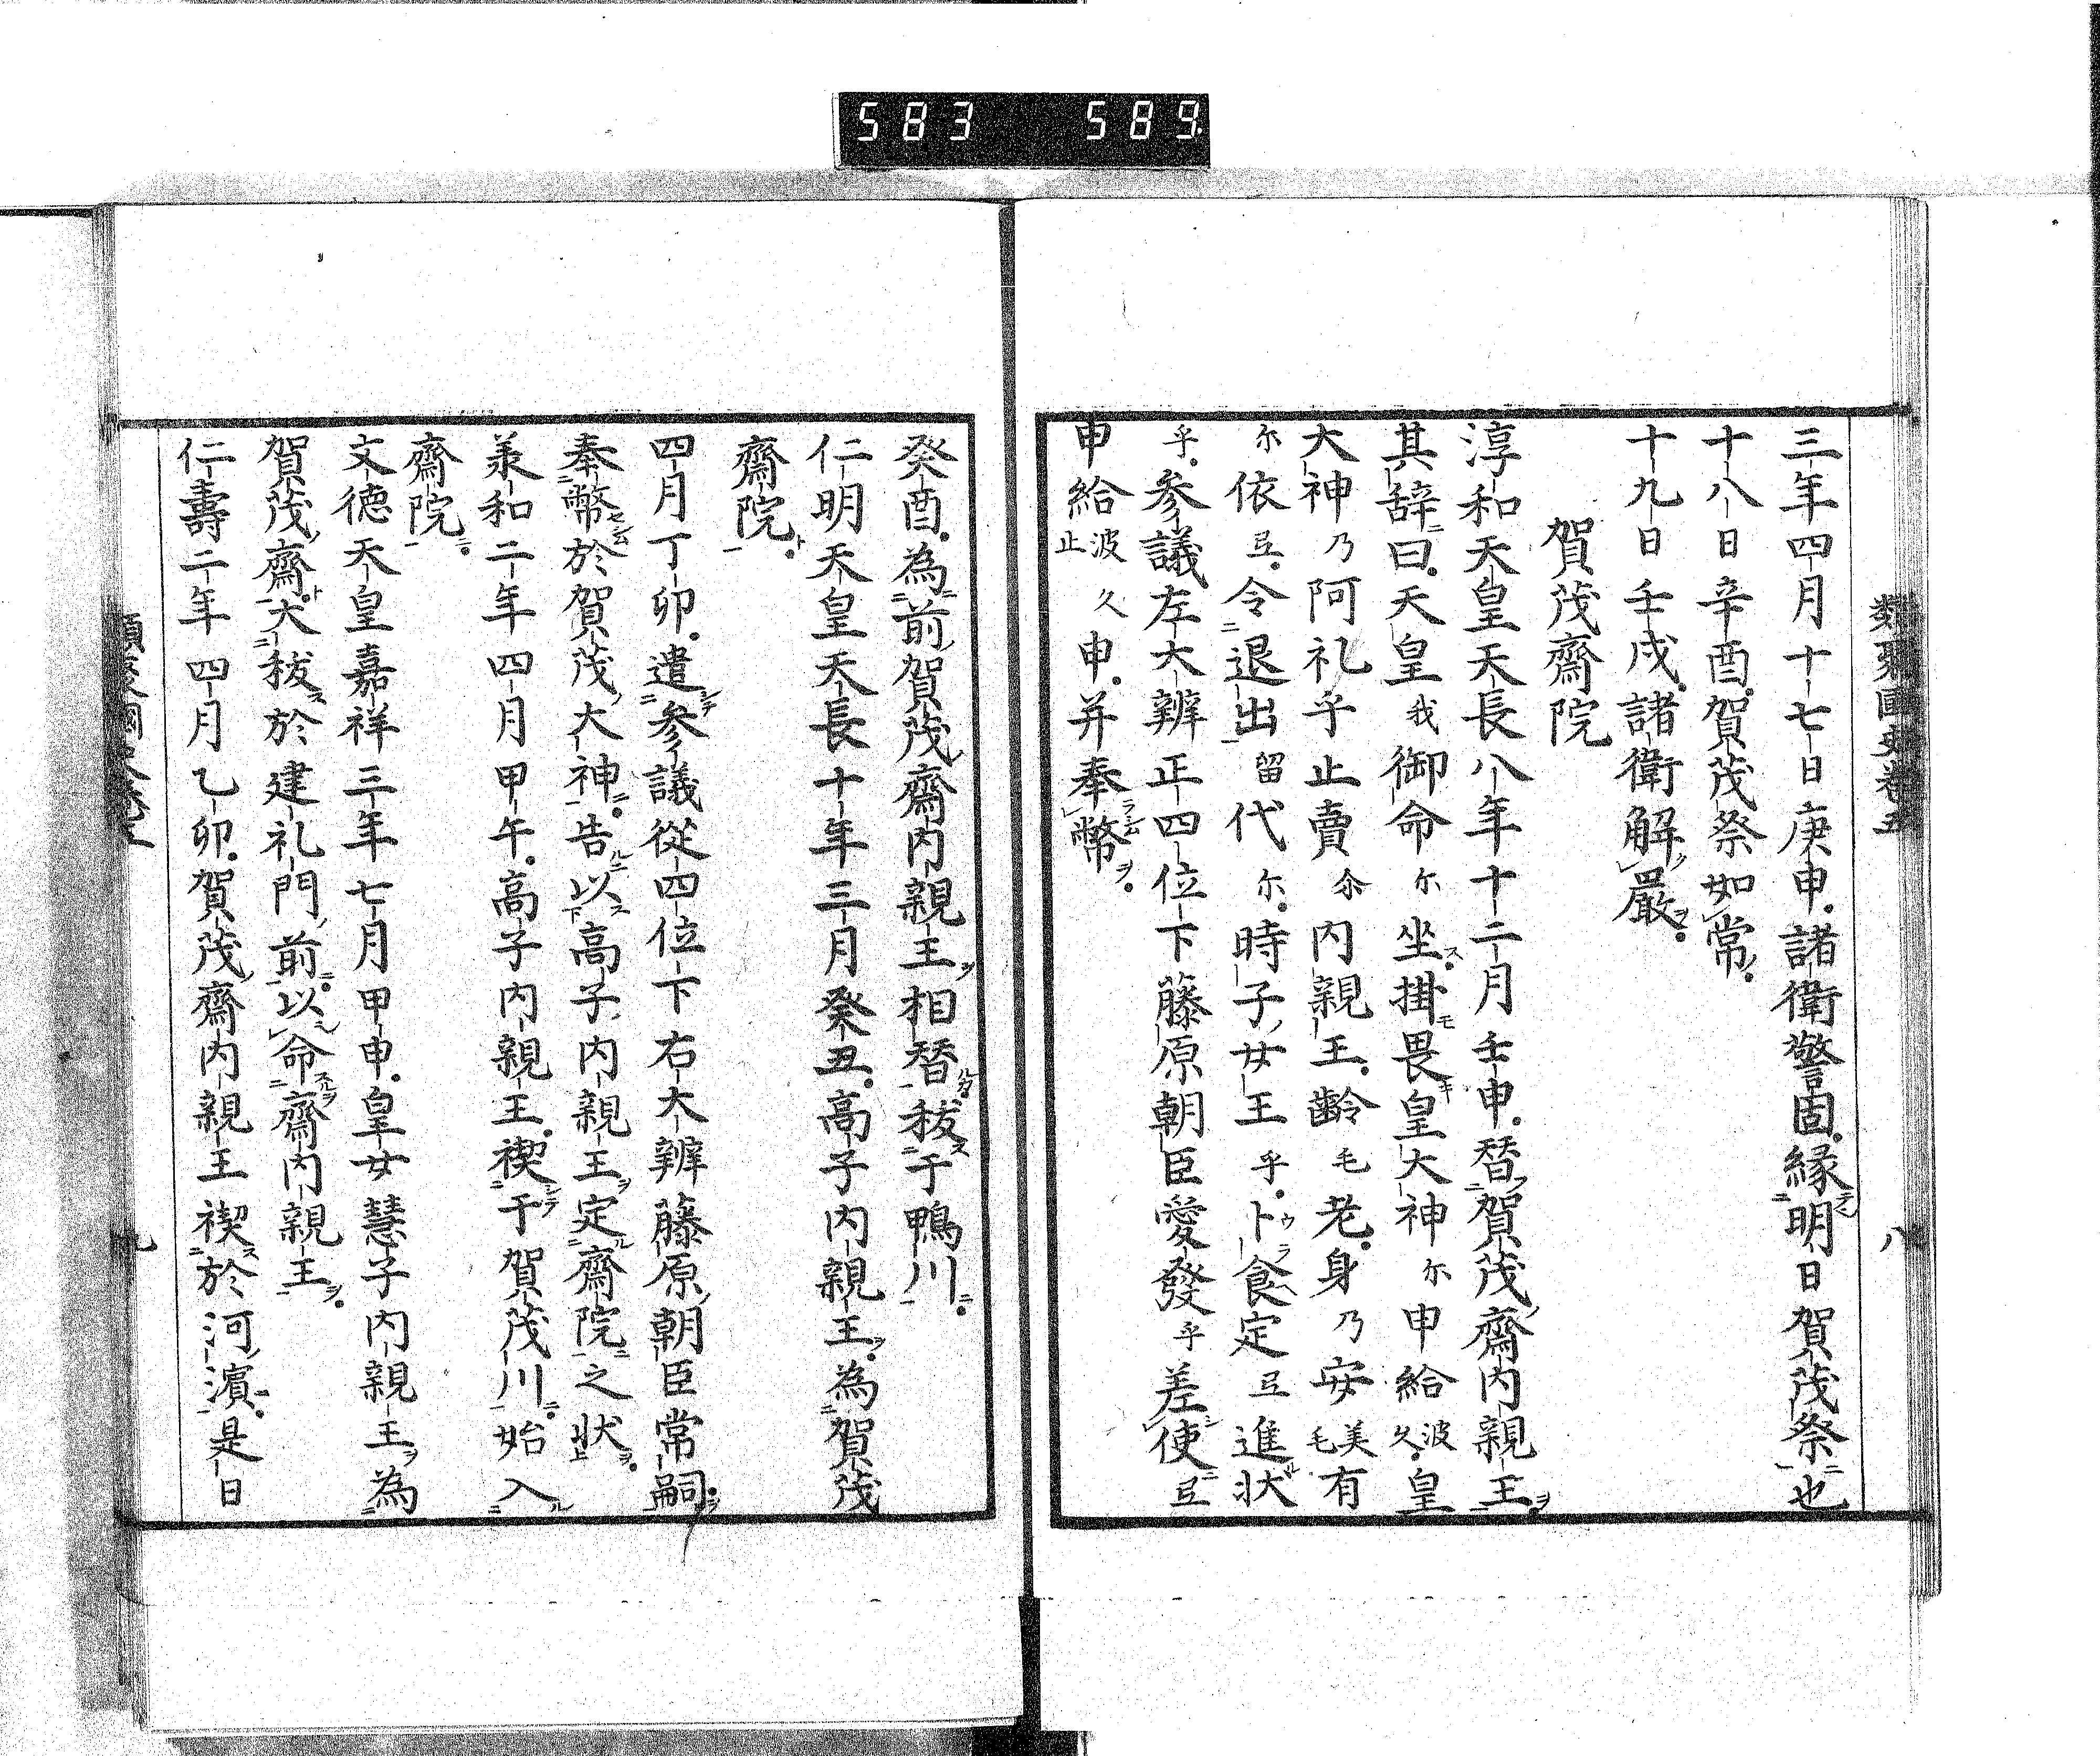 583 589
類聚國史卷五
八
三年四月十七日庚申諸衛警固緣明日賀茂祭也
十八日辛酉賀茂祭如常
十九日壬戌諸衛解嚴
賀茂齋院
淳和天皇天長八年十二月壬申替賀茂齋內親王
其辞曰天皇我御命尓坐掛畏皇大神尓申給波久皇
大神乃阿礼乎止賣尒内親王齡毛老身乃安美毛有
尓依弖令退出留代尓時子女王乎卜食定弖進状
乎参議左大辨正四位下藤原朝臣愛發乎差使弖
申給波止久申并奉幣
癸酉為前賀茂齋內親王相替秡于鴨川
仁明天皇天長十年三月癸丑高子内親王為賀茂
齋院
四月丁卯遣参議從四位下右大辨藤原朝臣常嗣
奉幣於賀茂大神告以高子内親王定齋院之状
承和二年四月甲午高子内親王禊于賀茂川始入
齋院
文德天皇嘉祥三年七月甲申皇女慧子内親王為
賀茂齋大秡於建礼門前以命齋内親王
仁壽二年四月乙卯賀茂齋内親王禊於河濱是日
類聚國史卷五
九